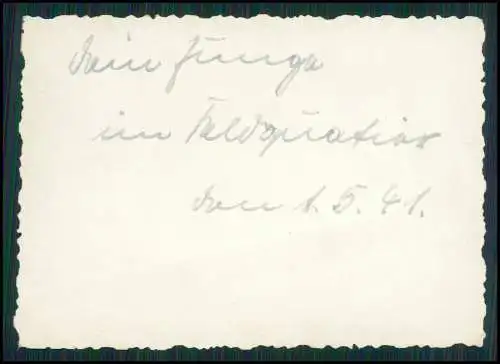 Dein Junge
im Feldquatier
den 1.5.41.